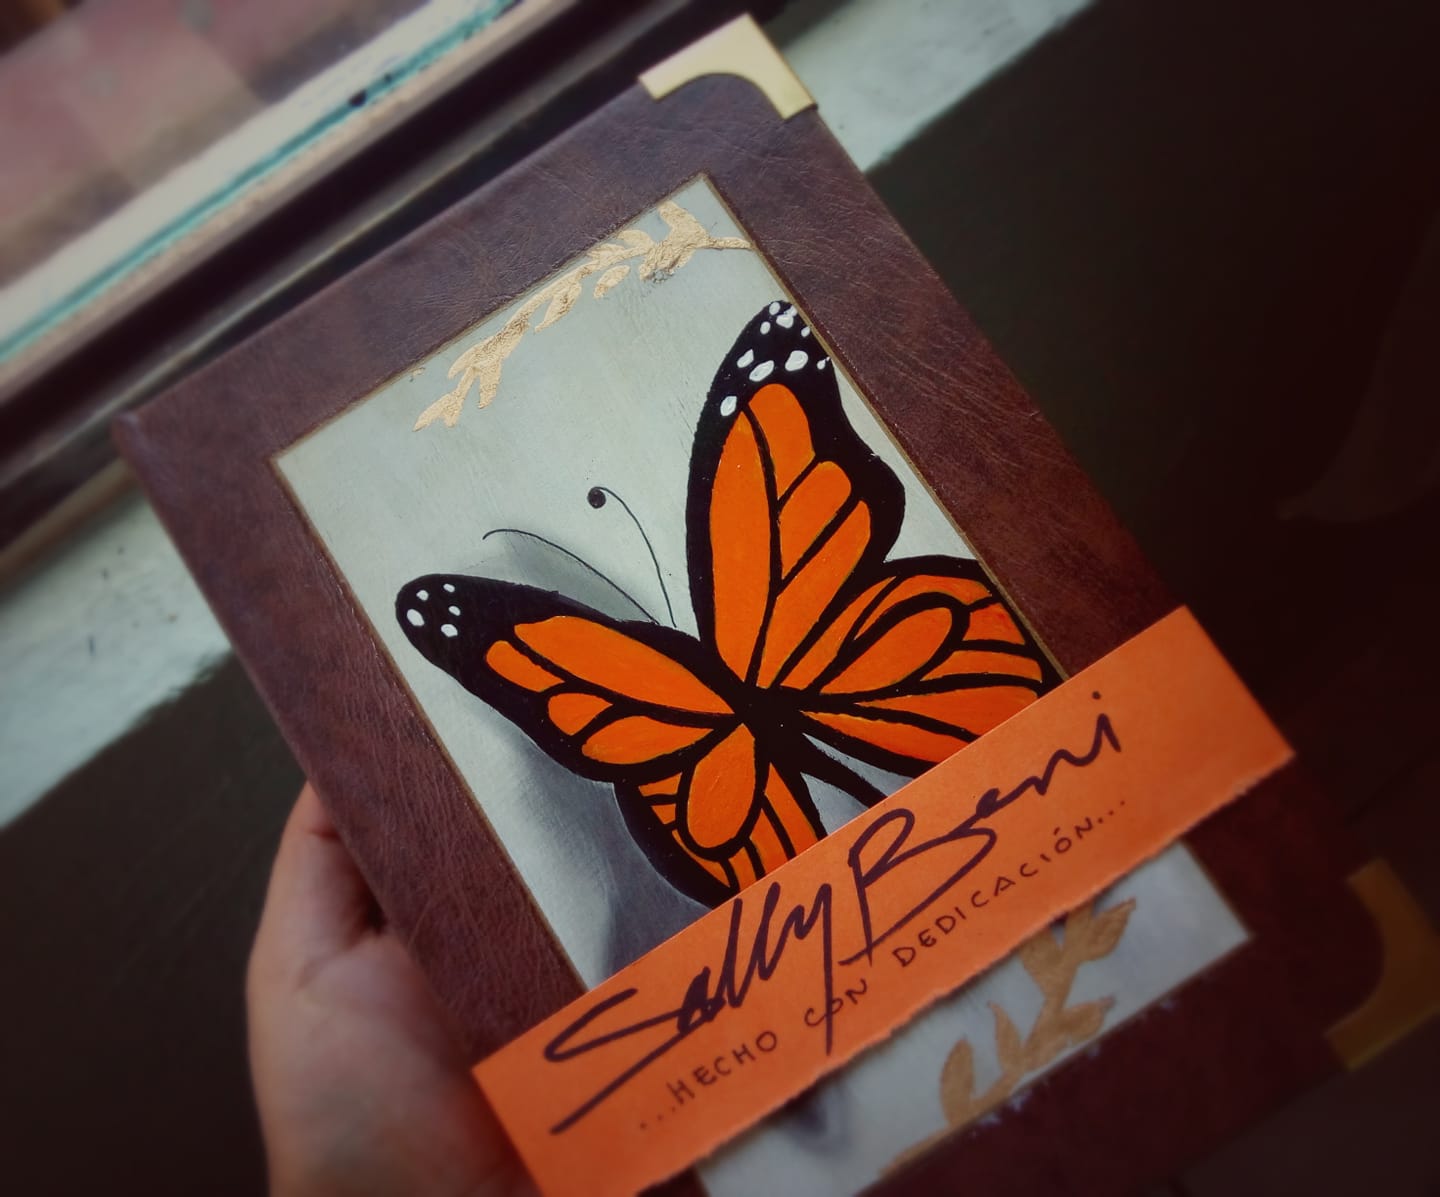 Sally Beni
...HECHO CON DEDICACIÓN...